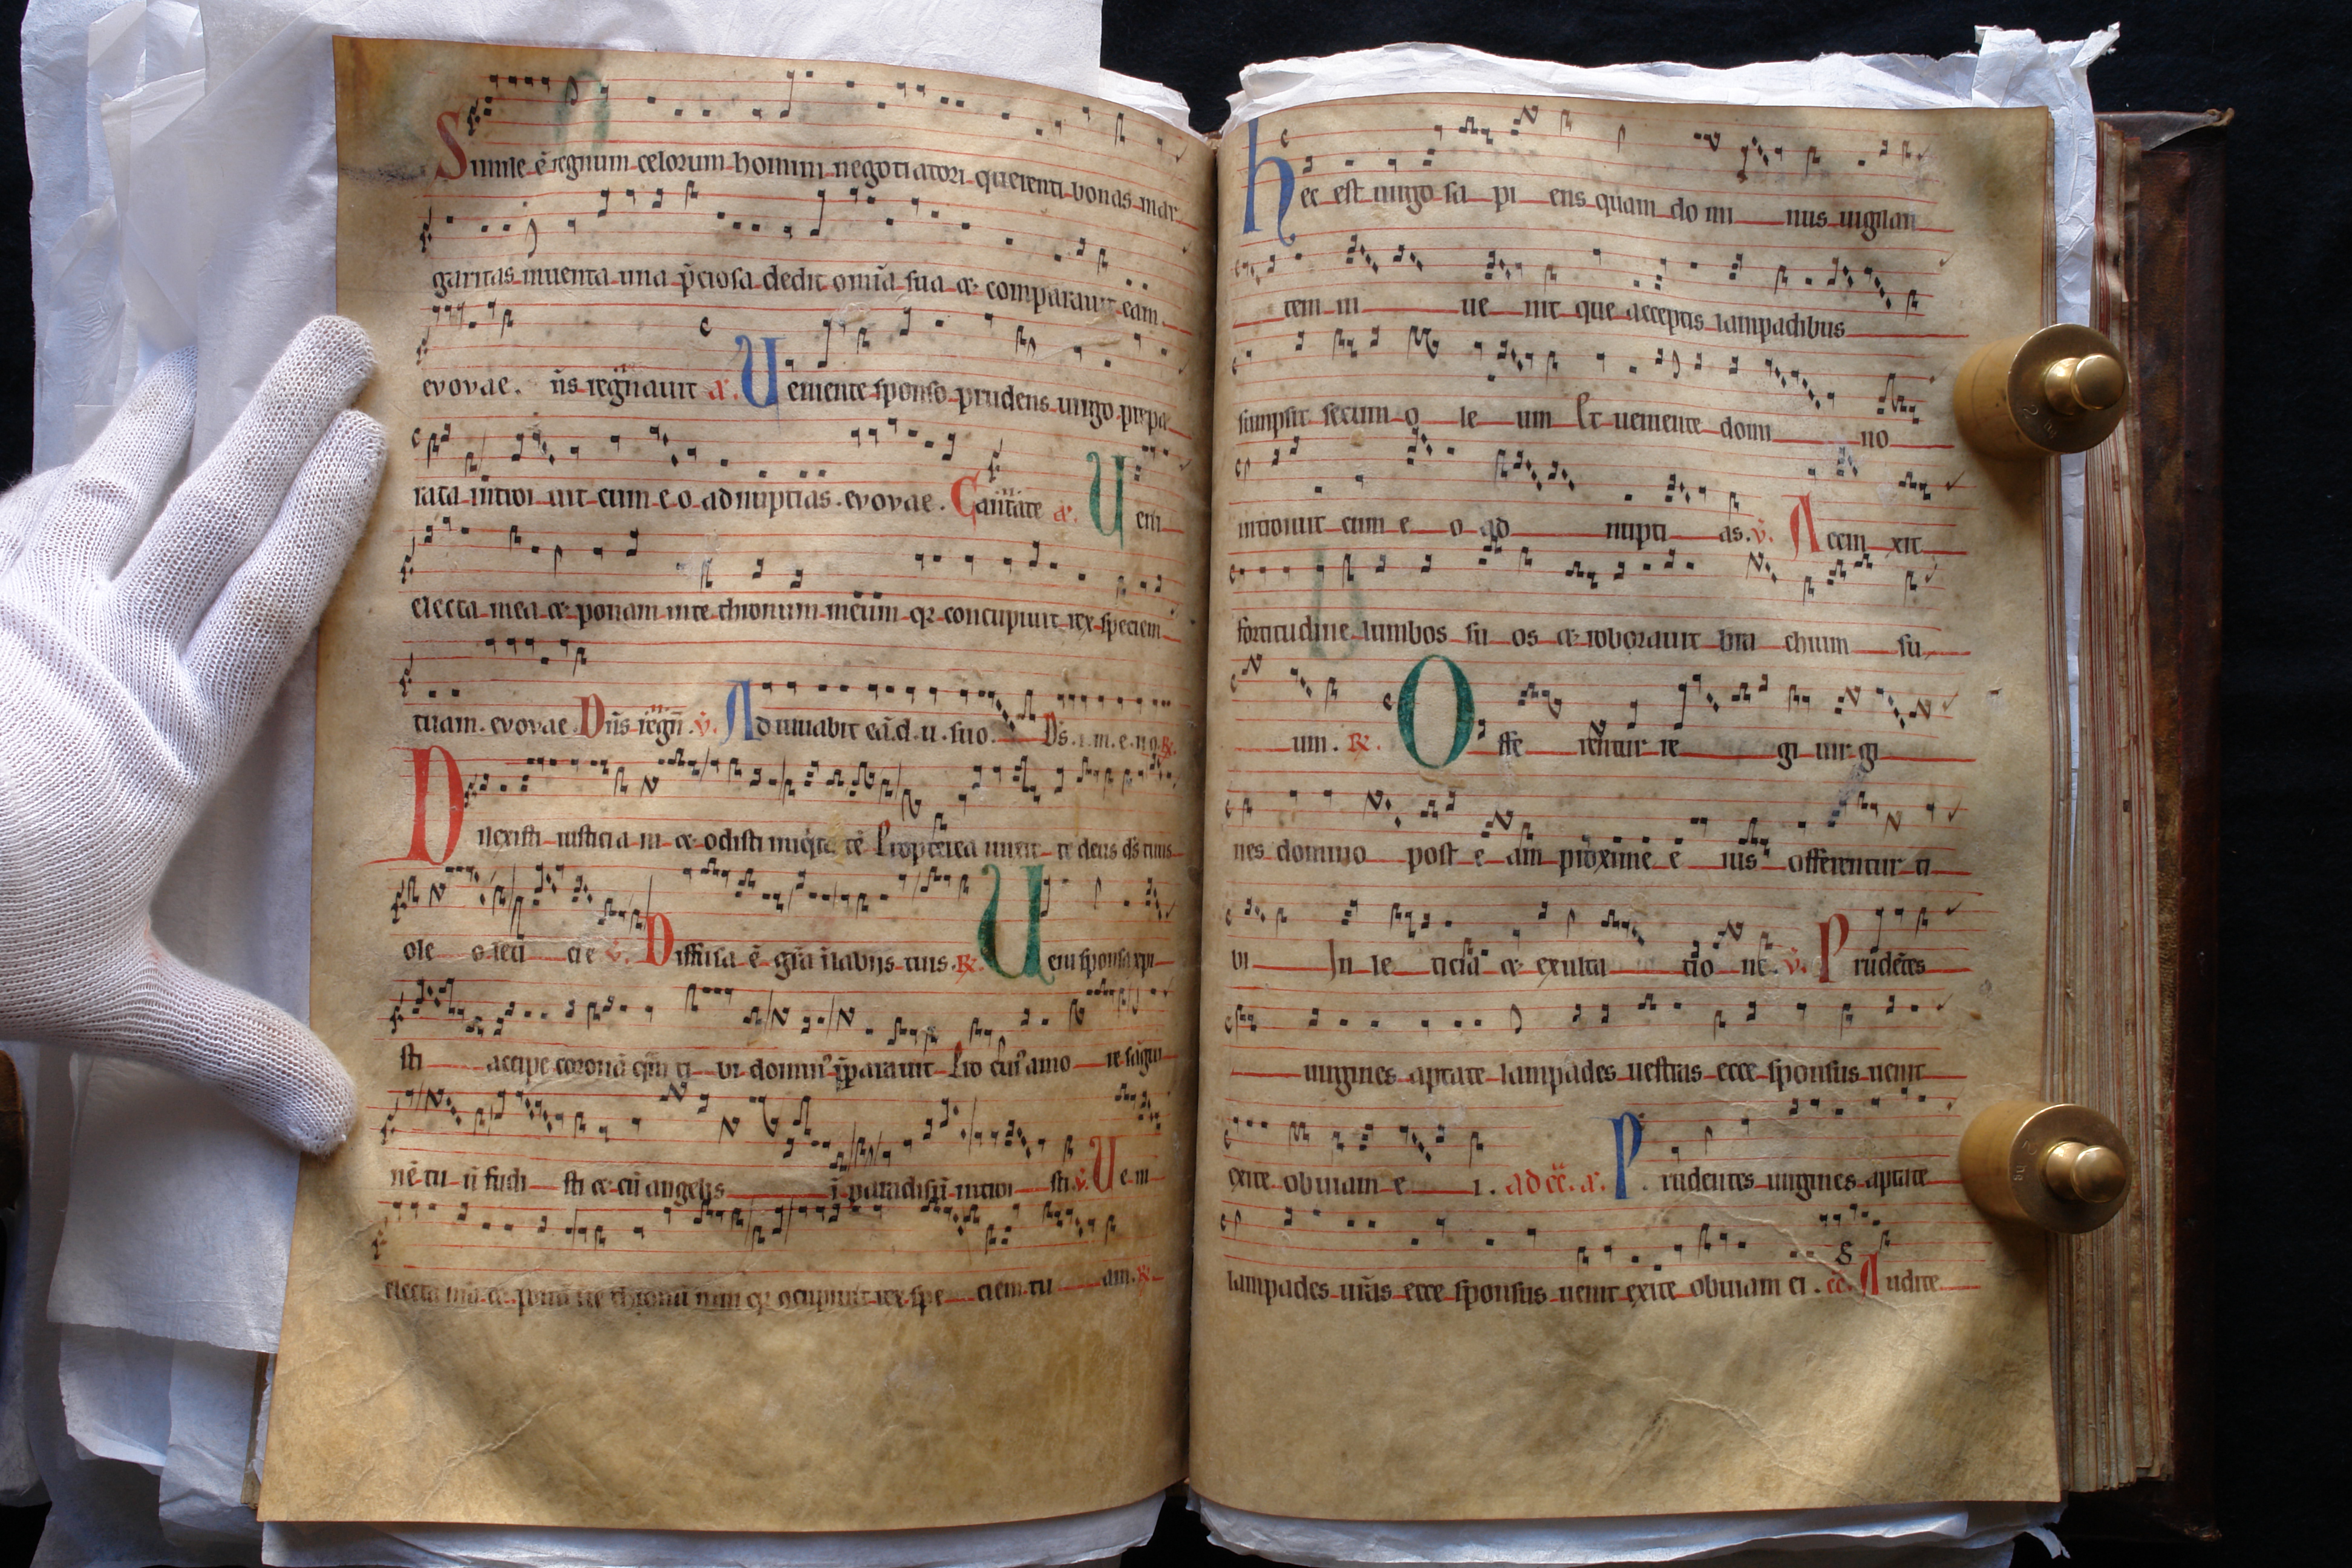 Simile ē regnum celorum homini negotiatori querenti bonas mar
garitas inuenta una p̄ciosa dedit omīa sua et comparauit eam.
evovae. n̄s regnauit a. Ueniente sponso prudens uirgo prepa
rata introiuit cum eo ad nuptias. evovae. Cantate a. Ueni
electa mea et ponam in te thronum meum qꝫ concupiuit rex speciem
tuam. evovae. Dn̄s regn̄. v. Adiuuabit eā. d. u. suo. Ds. i. m. e. no. R.
Dilexisti iusticiam et odisti iniqitatē Propterea unxit te deus ds̄ tuus
oleo leticie v. Diffusa ē gr̄a ī labijs tuis. R. Ueni sponsa xp̄i
sti accipe coronā qm̄ tibi dominus p̄parauit Pro cuiꝰ amore sāgui
nē tuū fudisti et cū angelis ī paradisū introisti. v. Ueni
electa mea et ponā ī te thronū meum qꝫ ꝯcupiuit rex speciem tuam. R.
Hec est uirgo sapiens quam dominus uigilan
tem inuenit que acceptis lampadibus
sumpsit secum oleum Et ueniente domino
introiuit cum eo ad nuptias. v. Accinxit
fortitudine lumbos suos et roborauit brachium su
um. R. Offerentur regi uirgi
nes domino post eam proxime eius offerentur ti
bi In leticia et exultatione. v. Prudētes
uirgines aptate lampades uestras ecce sponsus uenit
exite obuiam ei. ad cc̄. a. Prudentes uirgines aptate
lampades ur̄as ecce sponsus uenit exite obuiam ei. cc̄. Audite